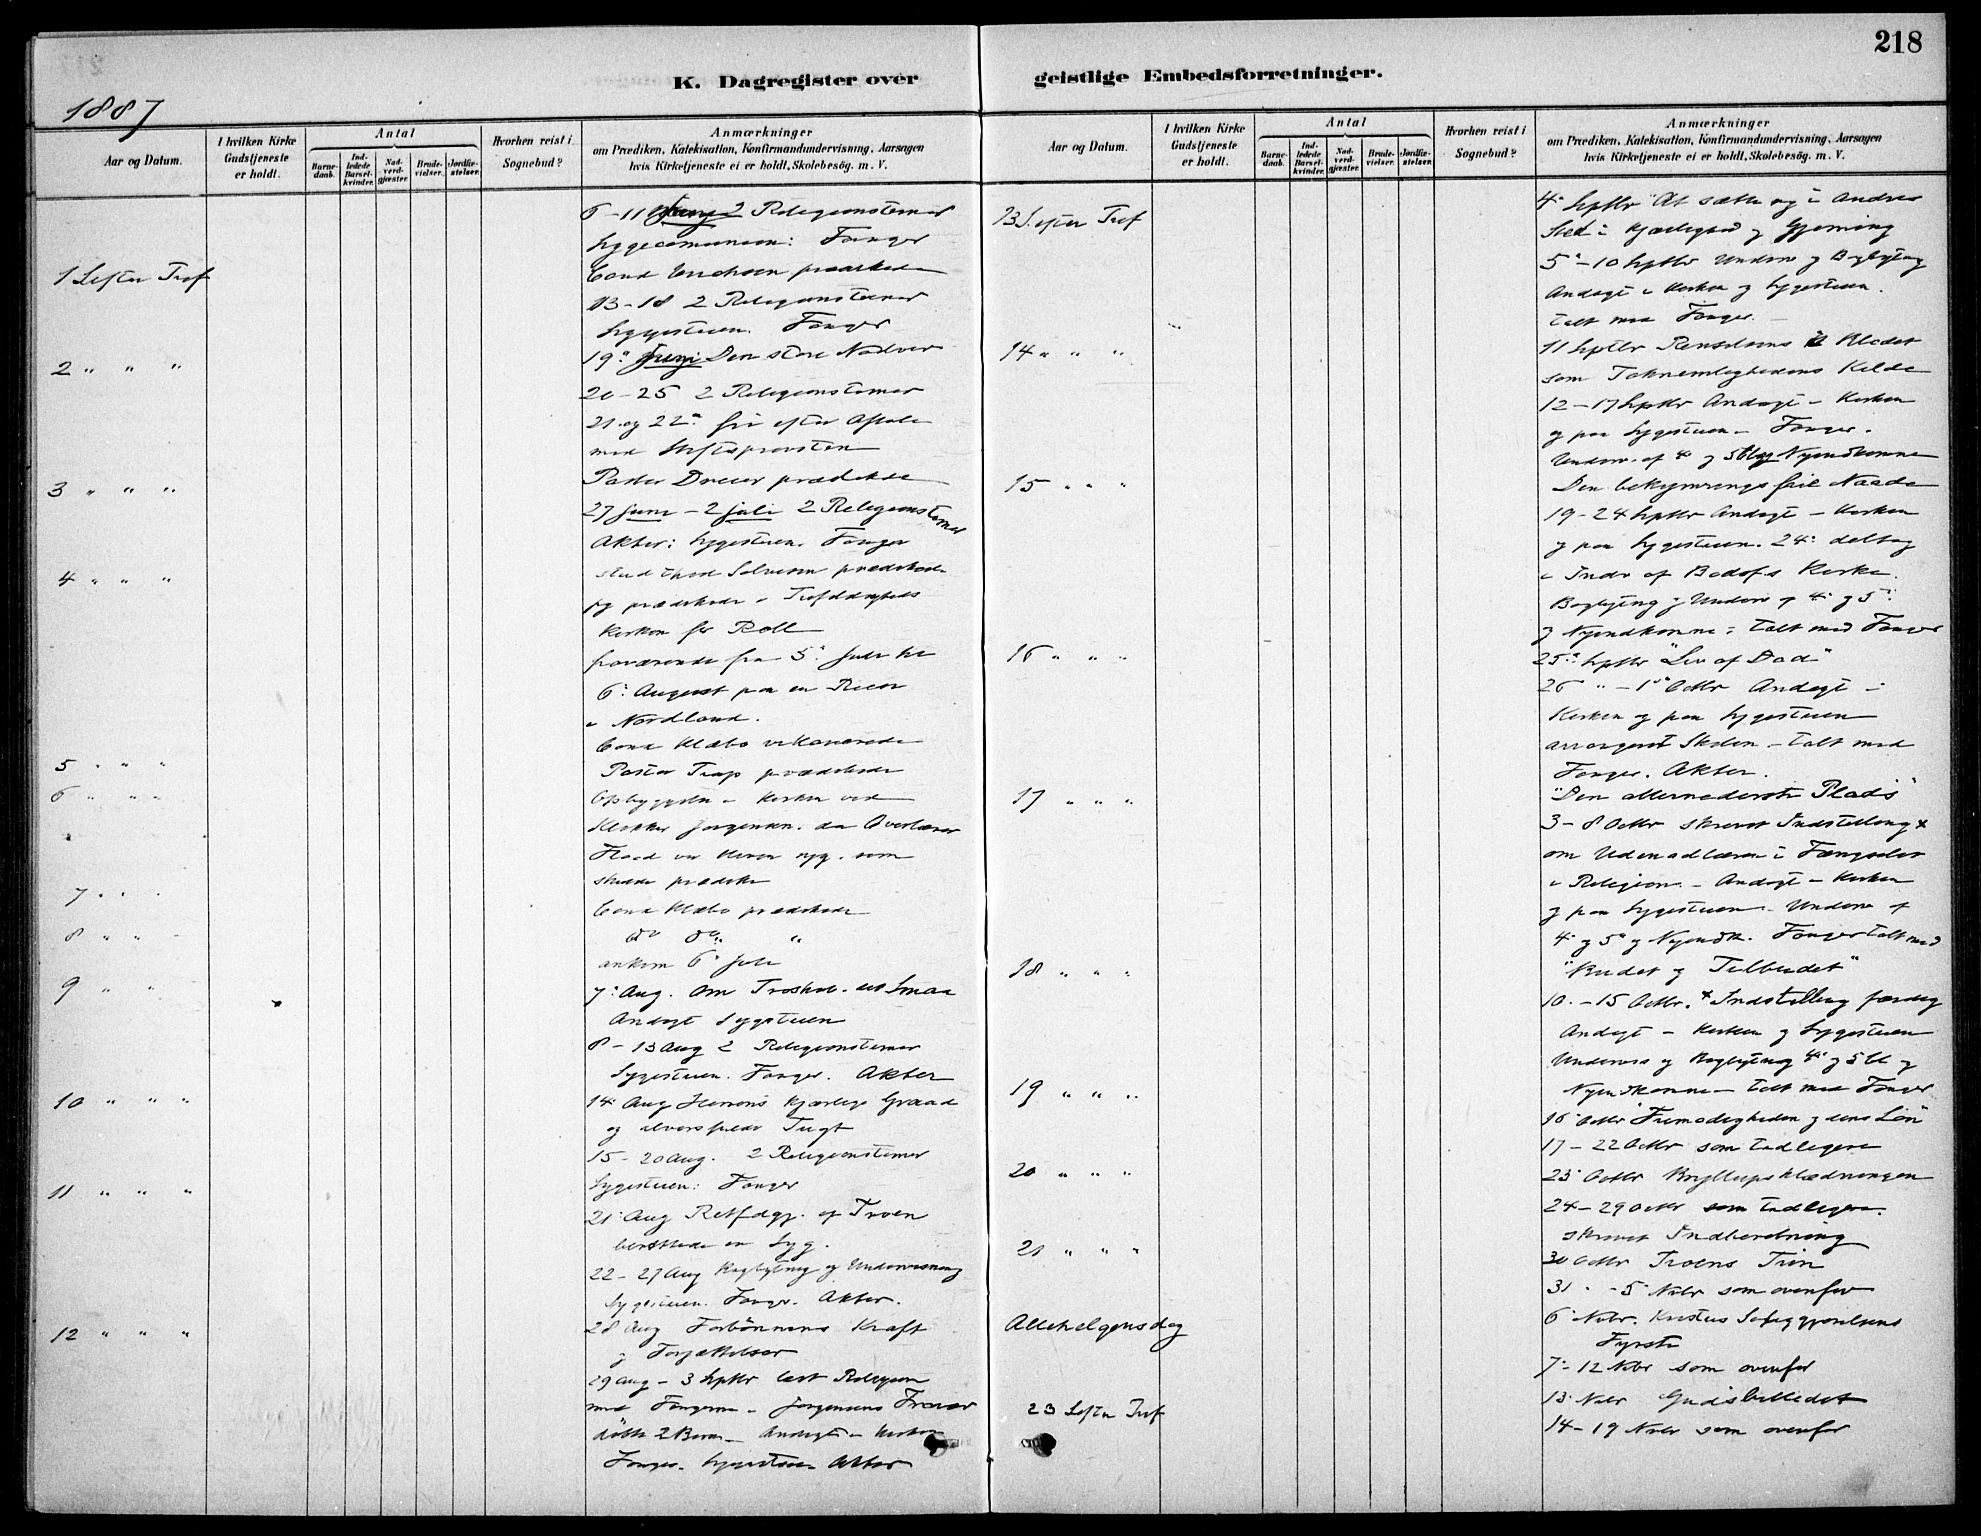 218
K. Dagregister over geistlige Embedsforretninger.
1887
Aar og Datum.
I hvilken Kirke Gudstjeneste er holdt.
Antal
Barne-daab.
Ind-ledede Barsel-kvinder.
Nad-verd-gjæster.
Brude-vielser.
Jordfæ-stelser.
Hvorhen reist i Sognebud?
Anmærkninger
om Prædiken, Katekisation, Konfirmandundervisning, Aarsagen
hvis Kirketjeneste ei er holdt, Skolebesög. m. V.
6-11 Juny 2 Religionstimer
Fanger
1 S efter Tref
Cand prædikede
13-18 2 Religionstimer
Sygestuen. Fanger
2 " " "
19: Juni Den store Nadver
20-25 2 Religionstimer
21. og 22: fri efter Aftale
med Stiftsprovsten
3 " " "
Pastor Dreier prædikede
27 Juni - 2 Juli 2 Religionstimer
Akter: Sygestuen. Fanger
4 " " "
stud theol prædikede
prædikede i
Kirken for Roll
fraværende fra 5: Juli til
6: August paa en Reise
i Nordland.
Cand Klæbo vikarierede
5 " " "
Pastor Trap prædikede
6 " " "
Opbyggelse i Kirken ved
Klokker Jörgensen. da Overlærer
som
skulde prædike
7 " " "
Cand Klæbo prædikede
8 " "
do do "
ankom 6: Juli
9 " "
7: Aug. Om Troskab i det Smaa
Andagt Sygestuen
8-13 Aug 2 Religionstimer
Sygestuen. Fanger. Akter
10 " " "
14: Aug Herrens kjærlige Graad
og Tugt
15-20 Aug. 2 Religionstimer
Sygestuen: Fanger
11 " " "
21: Aug Retfdgj. af Troen
berettede en Syg.
22-27 Aug Bogbytning og Undervisning
Sygestuen. Fanger. Akter.
12 " " "
28 Aug Forbönnens Kraft
og Forjættelser
29 Aug - 3 Sptbr læst Religion
med Fangerne - Jörgensens
2 Börn - Andagt i Kirken
Fanger. Sygestuen Akter
Aar og Datum.
I hvilken Kirke Gudstjeneste er holdt.
Antal
Barne-daab.
Ind-ledede Barsel-kvinder.
Nad-verd-gjæster.
Brude-vielser.
Jordfæ-stelser.
Hvorhen reist i Sognebud?
Anmærkninger
om Prædiken, Katekisation, Konfirmandundervisning, Aarsagen
hvis Kirketjeneste ei er holdt, Skolebesög. m. V.
13 S. efter Tref
4: Sptbr "At sætte sig i Andres
Sted i Kjærlighed og Gjerning
5: - 10 Sptbr Underv og Bogbytning
Andagt i Kirken og Sygestuen.
talt med Fanger.
14 " " "
11 Sptbr Renselsens Blodet
som Taknemlighedens Kilde
12-17 Sptbr Andagt i Kirken
og paa Sygestuen - Fanger.
Underv. af 4: og 5 Kl og Nyindkomne
15 " " "
Den bekymringsfrie Naade
19-24 Sptbr Andagt i Kirken
og paa Sygestuen. 24: deltog
i Indv af Bodøs Kirke.
Bogbytning og Underv af 4: og 5:
og Nyindkomne: talt med Fanger
16 " " "
25: Sptbr "Liv af Död"
26 " - 1: Octbr Andagt i
Kirken og paa Sygestuen
arrangeret Skolen - talt med
Fanger. Akter.
17 " " "
"Den allernederste Plads"
3-8 Octbr skrevet Indstilling x
om Udenadlæren i Fængslet
i Religion. - Andagt i Kirken
og paa Sygestuen - Underv af
4: og 5: og Nyindk. Fanger talt med
18 " " "
"Budet og Tilbudet"
10. - 15 Octbr. x Indstilling færdig
Andagt i Kirken og Sygestuen
Underv og Bogbytning 4: og 5 Kl og
19 " " "
Nyindkomne - talt med Fanger
16: Octbr "Frimodigheden og dens Lön"
17-22 Octbr som tidligere
20 " " "
23: Octbr Bryllupsklædningen
24-29 Octbr som tidligere.
skrevet Indberetning
21 " " "
30 Octbr Troens Trin
31 " - 5: Nvbr som ovenfor
Allehelgensdag
6: Nvbr. Kristus
Fyrste
7:-12 Nvbr som ovenfor
23 S efter Tref
13: Nvbr Gudsbilledet
14-19 Nvbr som ovenfor